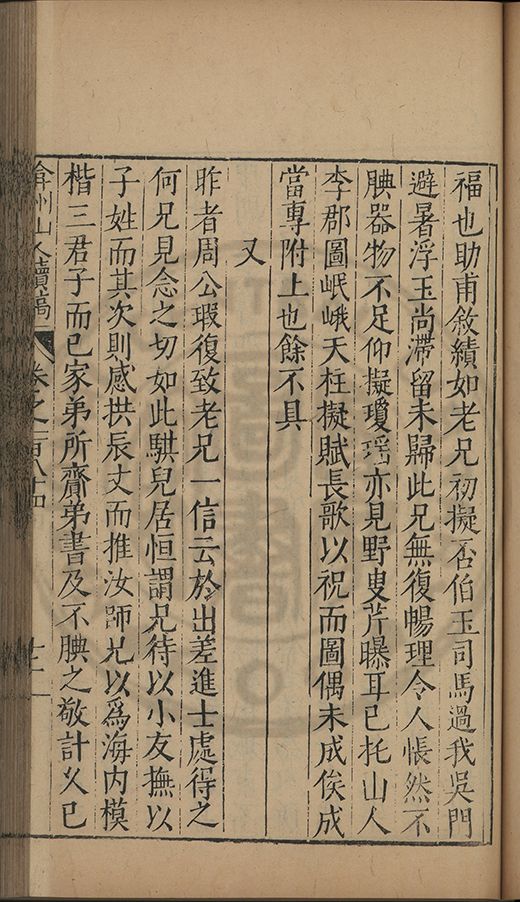 福也助甫敘績如老兄初擬否伯玉司馬過我吳門
避暑浮玉尚滯留未歸此兄無復暢理令人悵然不
腆器物不足仰擬瓊瑤亦見野叟芹曝耳已托山人
李郡圖岷峨天柱擬賦長歌以祝而圖偶未成俟成
當專附上也餘不具
又
昨者周公瑕復致老兄一信云於出差進士處得之
何兄見念之切如此騏兒居恒謂兄待以小友撫以
子姓而其次則感拱辰丈而推汝師兄以為海內模
楷三君子而已家弟所齎弟書及不腆之敬計久已
弇州山人續稿
卷之一百八十四